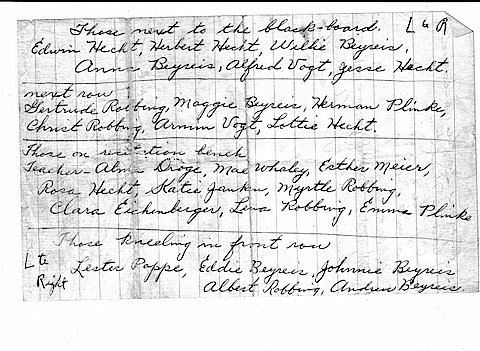 Those next to the black-board. L to R
Edwin Hecht, Herbert Hecht, Willie Beyreis,
Anna Beyreis, Alfred Vogt, Jesse Hecht.
next row
Gertrude Robbing, Maggie Beyreis, Herman Plinke,
Christ Robbing, Armin Vogt, Lottie Hecht.
Those on recitation bench
Teacher - Alma Dröge, Mae Whaley, Esther Meier,
Rosa Hecht, Katie Janken, Myrtle Robbing,
Clara Eichenberger, Lena Robbing, Emma Plinke
Those kneeling in front row
L to Right
Lester Poppe, Eddie Beyreis, Johnnie Beyreis
Albert Robbing, Andrew Beyreis.